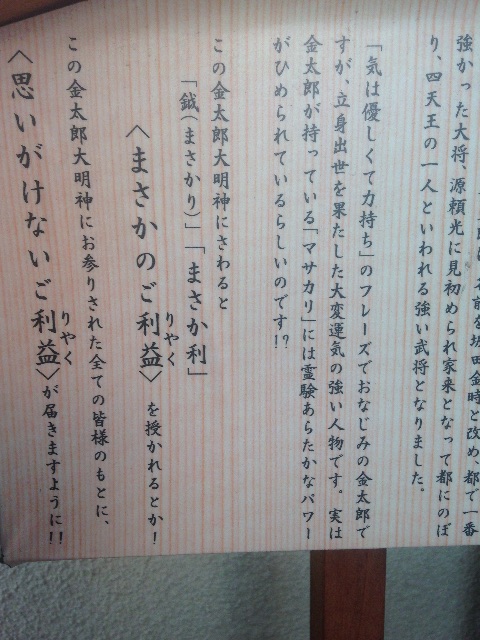 名前を坂田金時と改め、都で一番
強かった大将、源頼光に見初められ家来となって都にのぼ
り、四天王の一人といわれる強い武将となりました。
「気は優しくて力持ち」のフレーズでおなじみの金太郎で
すが、立身出世を果たした大変運気の強い人物です。実は
金太郎が持っている「マサカリ」には霊験あらたかなパワー
がひめられているらしいのです!?
この金太郎大明神にさわると
「鉞(まさかり)」「まさか利」
〈まさかのご利益〉を授かれるとか!
りやく
この金太郎大明神にお参りされた全ての皆様のもとに、
〈思いがけないご利益〉が届きますように!!
りやく